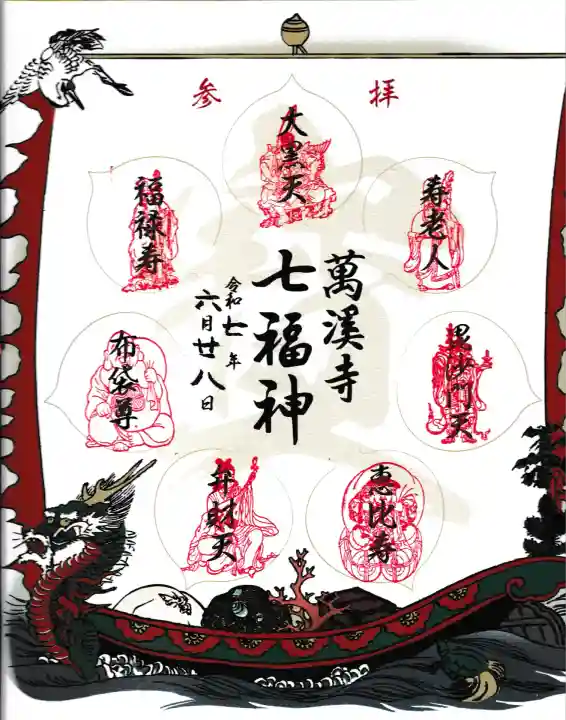 参拝
大黒天
寿老人
毘沙門天
恵比寿
弁財天
布袋尊
福禄寿
萬溪寺
七福神
令和七年
六月廿八日
寳